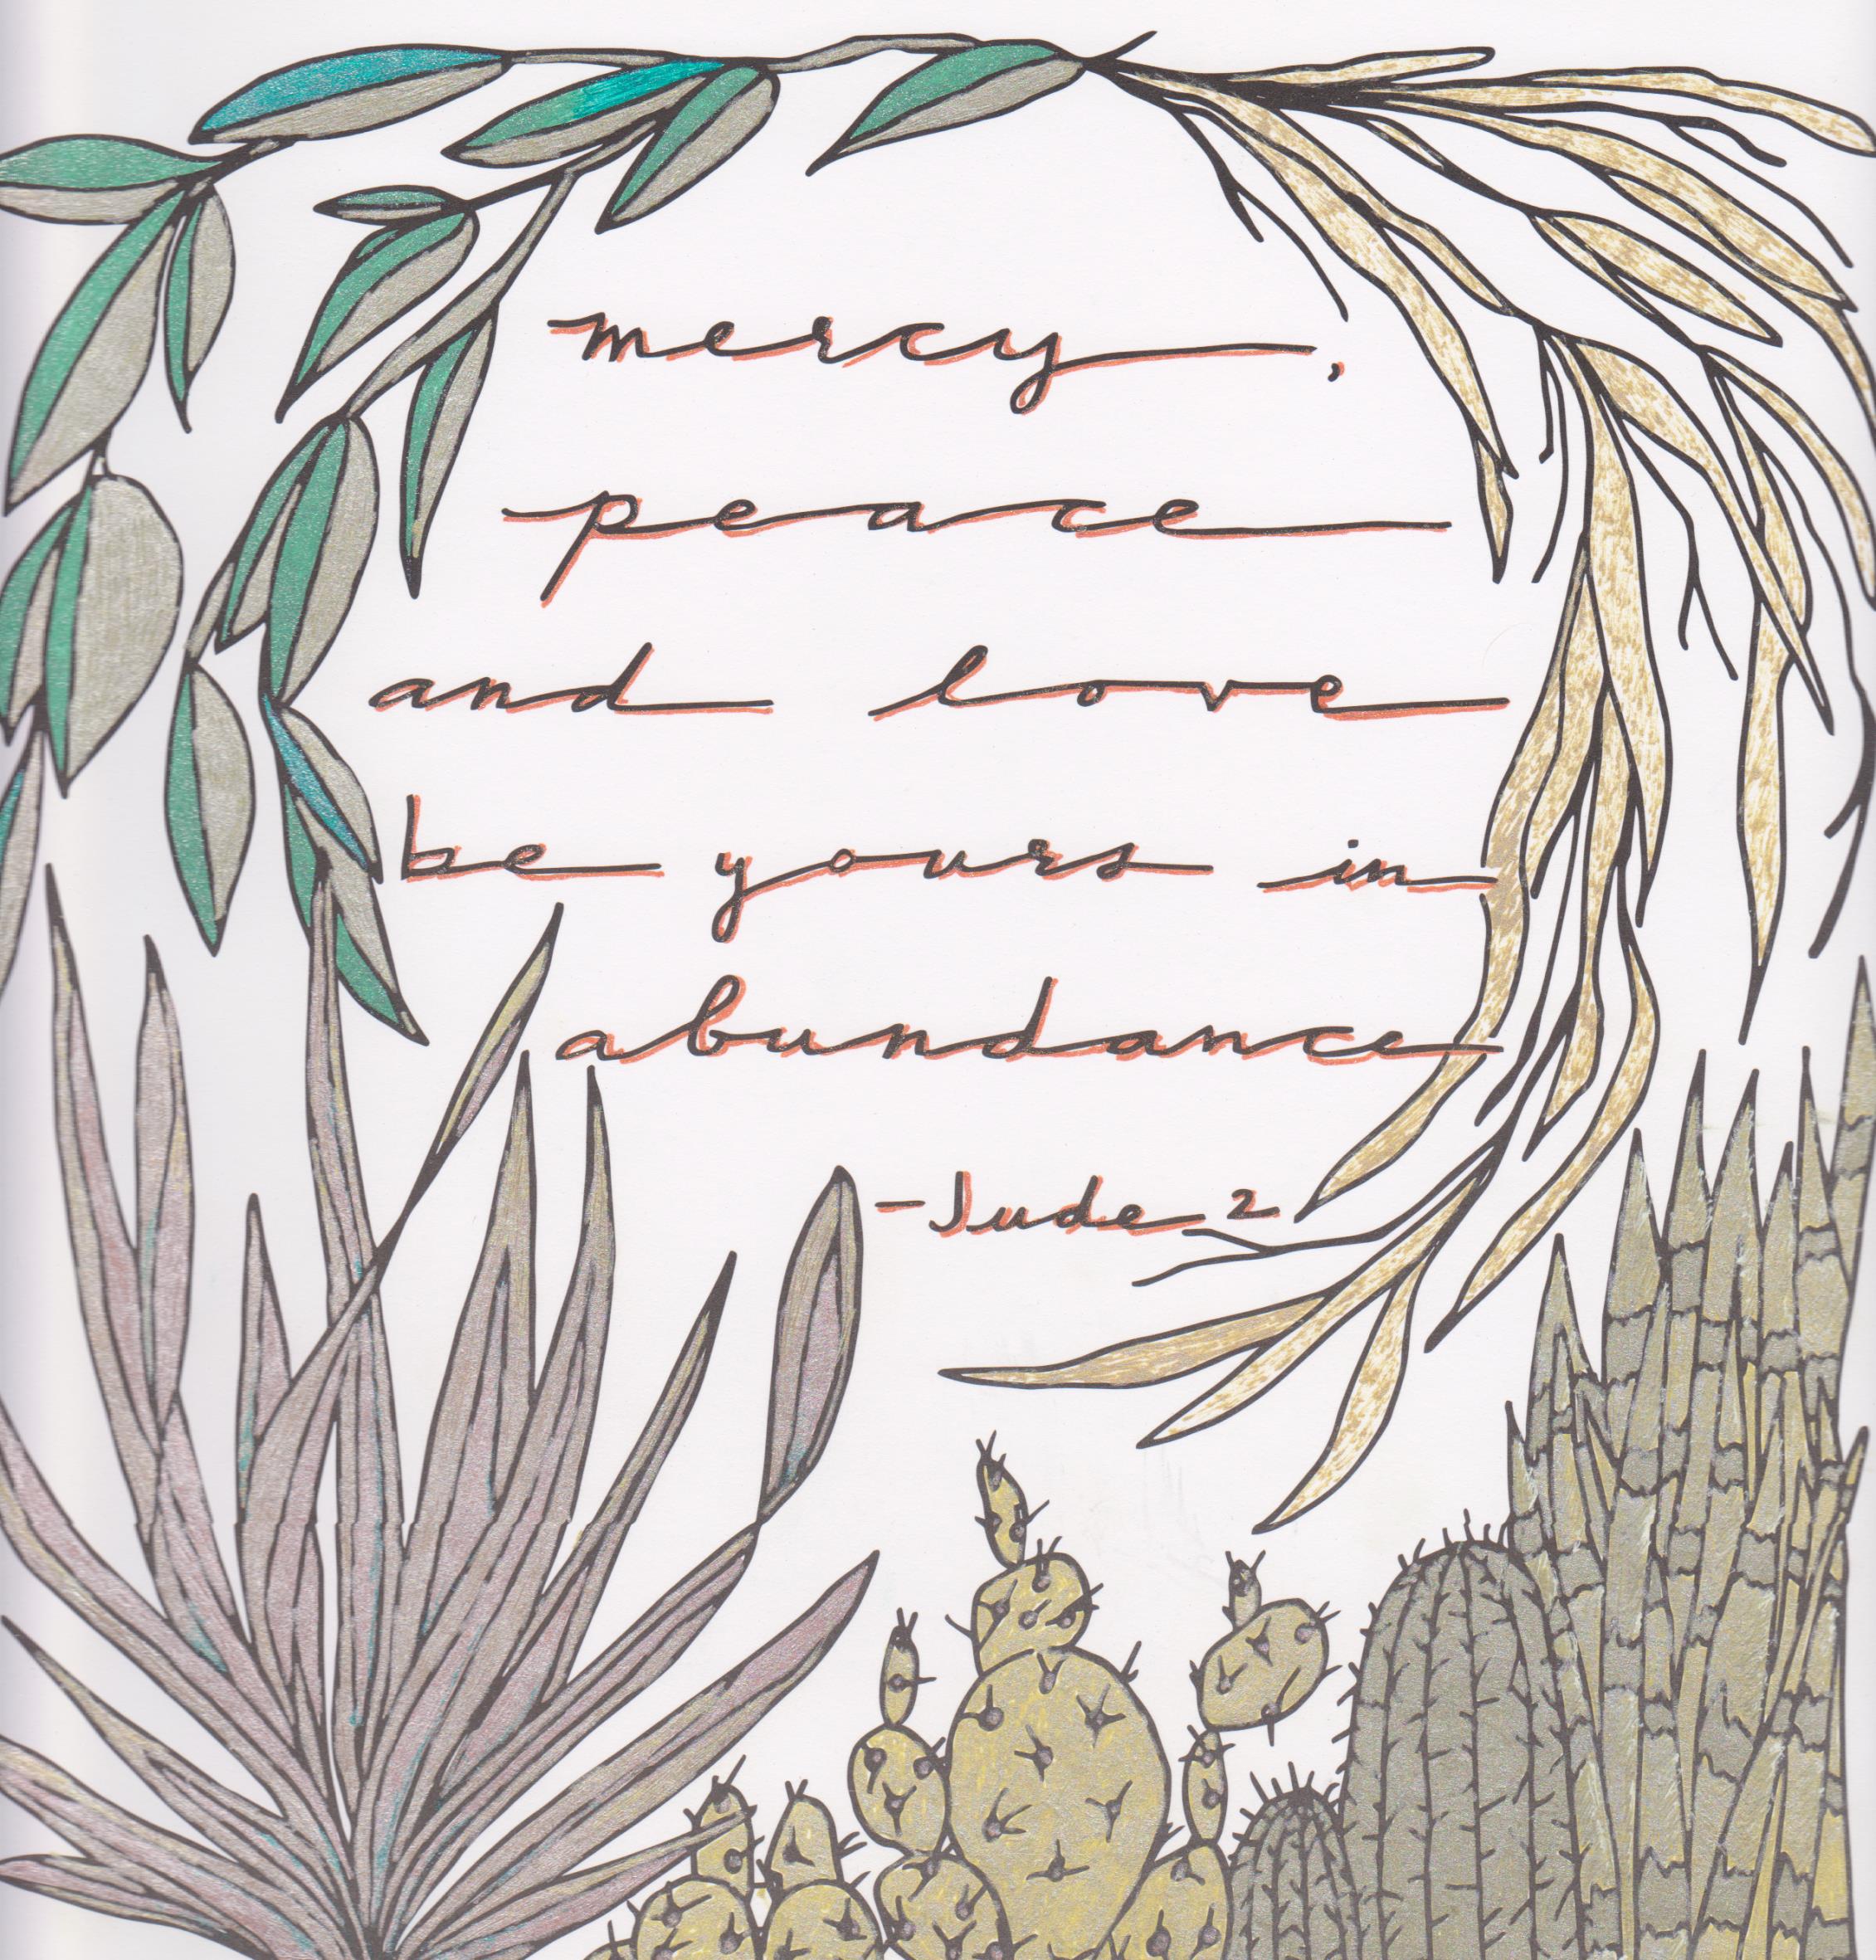 mercy,
peace
and love
be yours in
abundance
-Jude 2